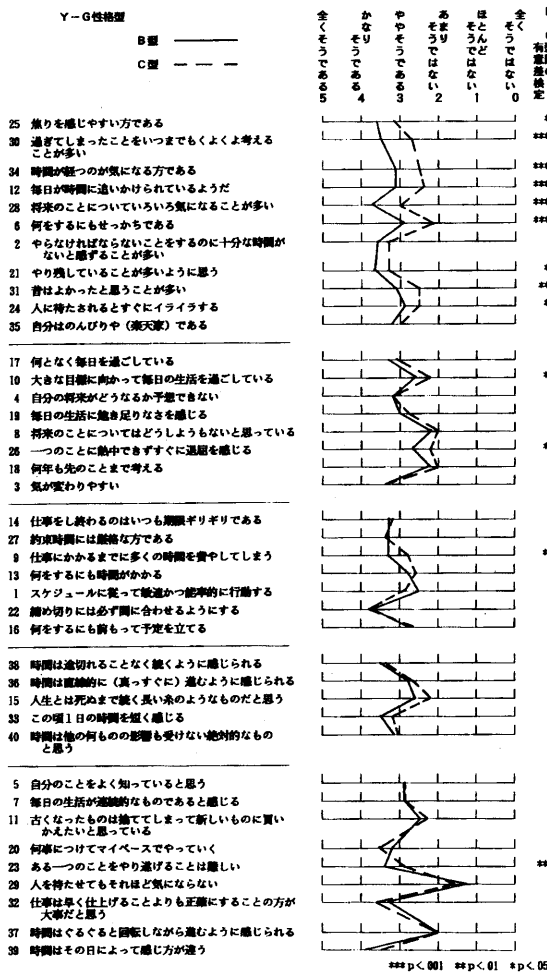 Y－G性格型
B型
C型
全くそうである
かなりそうである
ややそうである
あまりそうではない
ほとんどそうではない
全くそうではない
有意差検定
5 4 3 2 1 0
25 焦りを感じやすい方である *
30 過ぎてしまったことをいつまでもくよくよ考える ***
ことが多い
34 時間が経つのが気になる方である ***
12 毎日が時間に追いかけられているようだ ***
28 将来のことについていろいろ気になることが多い ***
6 何をするにもせっかちである ***
2 やらなければならないことをするのに十分な時間が
ないと感ずることが多い
21 やり残していることが多いように思う *
31 昔はよかったと思うことが多い **
24 人に待たされるとすぐにイライラする *
35 自分はのんびりや（楽天家）である
17 何となく毎日を過ごしている
10 大きな目標に向かって毎日の生活を過ごしている *
4 自分の将来がどうなるか予想できない
19 毎日の生活に飽き足りなさを感じる
8 将来のことについてはどうしようもないと思っている
26 一つのことに熱中できずすぐに退屈を感じる *
18 何年も先のことまで考える
3 気が変わりやすい
14 仕事をし終わるのはいつも期限ギリギリである
27 約束時間には厳格な方である
9 仕事にかかるまでに多くの時間を費やしてしまう *
13 何をするにも時間がかかる
1 スケジュールに従って敏速かつ能率的に行動する
22 締め切りには必ず間に合わせるようにする
16 何をするにも前もって予定を立てる
38 時間は途切れることなく続くように感じられる
36 時間は直線的に（真っすぐに）進むように感じられる
15 人生とは死ぬまで続く長い糸のようなものだと思う
33 この頃1日の時間を短く感じる
40 時間は他の何ものの影響も受けない絶対的なもの
と思う
5 自分のことをよく知っていると思う
7 毎日の生活が連続的なものであると感じる
11 古くなったものは捨ててしまって新しいものに買い
かえたいと思っている
20 何事につけてマイペースでやっていく
23 ある一つのことをやり遂げることは難しい **
29 人を待たせてもそれほど気にならない
32 仕事は早く仕上げることよりも正確にすることの方が
大事だと思う
37 時間はぐるぐると回転しながら進むように感じられる
39 時間はその日によって感じ方が違う
***p<.001 **p<.01 *p<.05